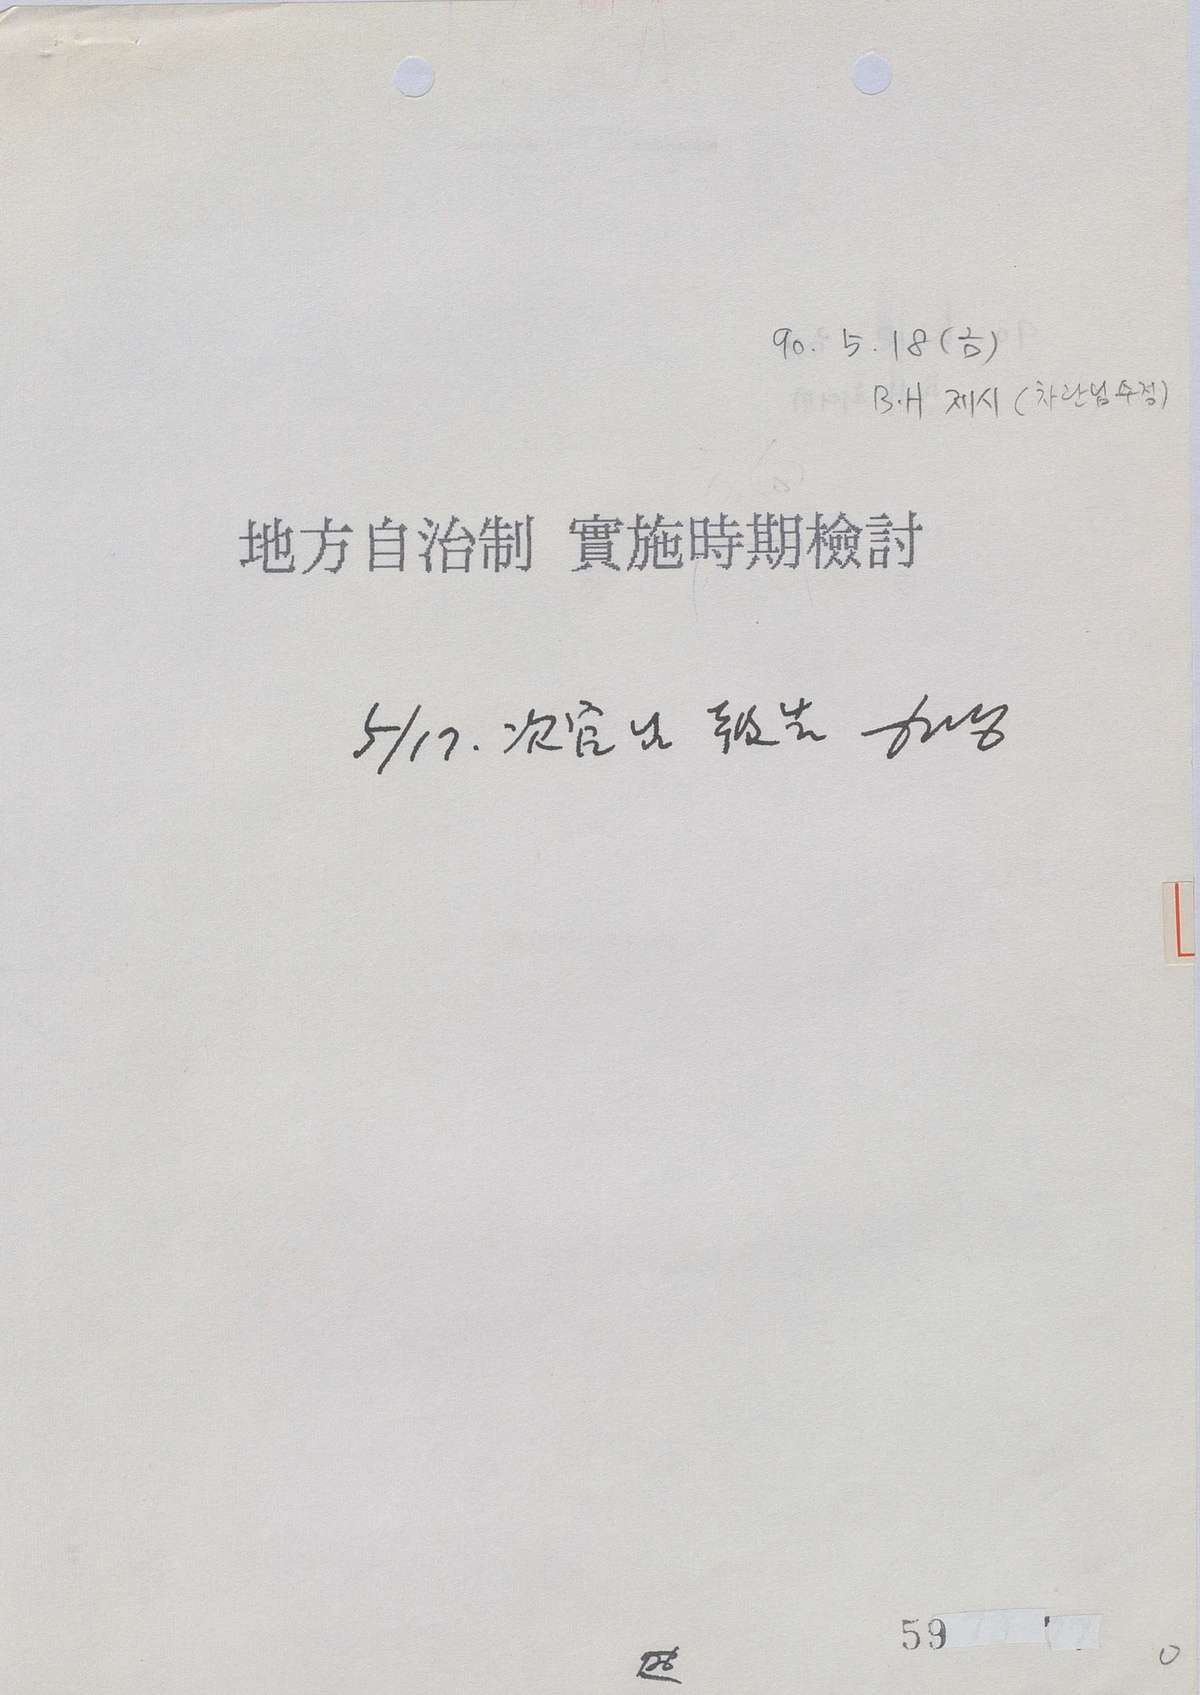 90. 5. 18 (금)
B.H 제시 (차관님 수정)
地方自治制 實施時期檢討
5/17. 次官님 報告
59